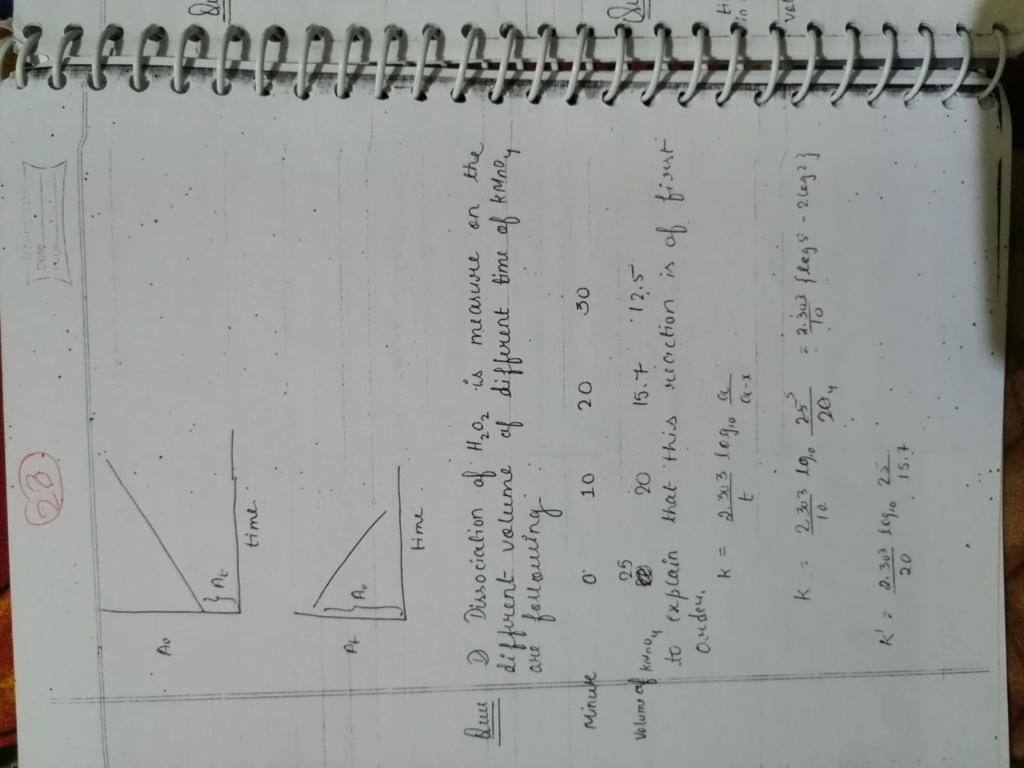 28
Date
A₀
{ Aₜ
time
Aₜ
{ A₀
time
Que 1) Dissociation of H₂O₂ is measure on the
different volume of different time of KMnO₄
are following.
Minute 0 10 20 30
Volume of KMnO₄ 25 20 15.7 12.5
to explain that this reaction is of first
Order.
K = 2.303/t log₁₀ a/a-x
K = 2.303/10 log₁₀ 25⁵/20₄ = 2.303/10 {log5 - 2log2}
K' = 2.303/20 log₁₀ 25/15.7